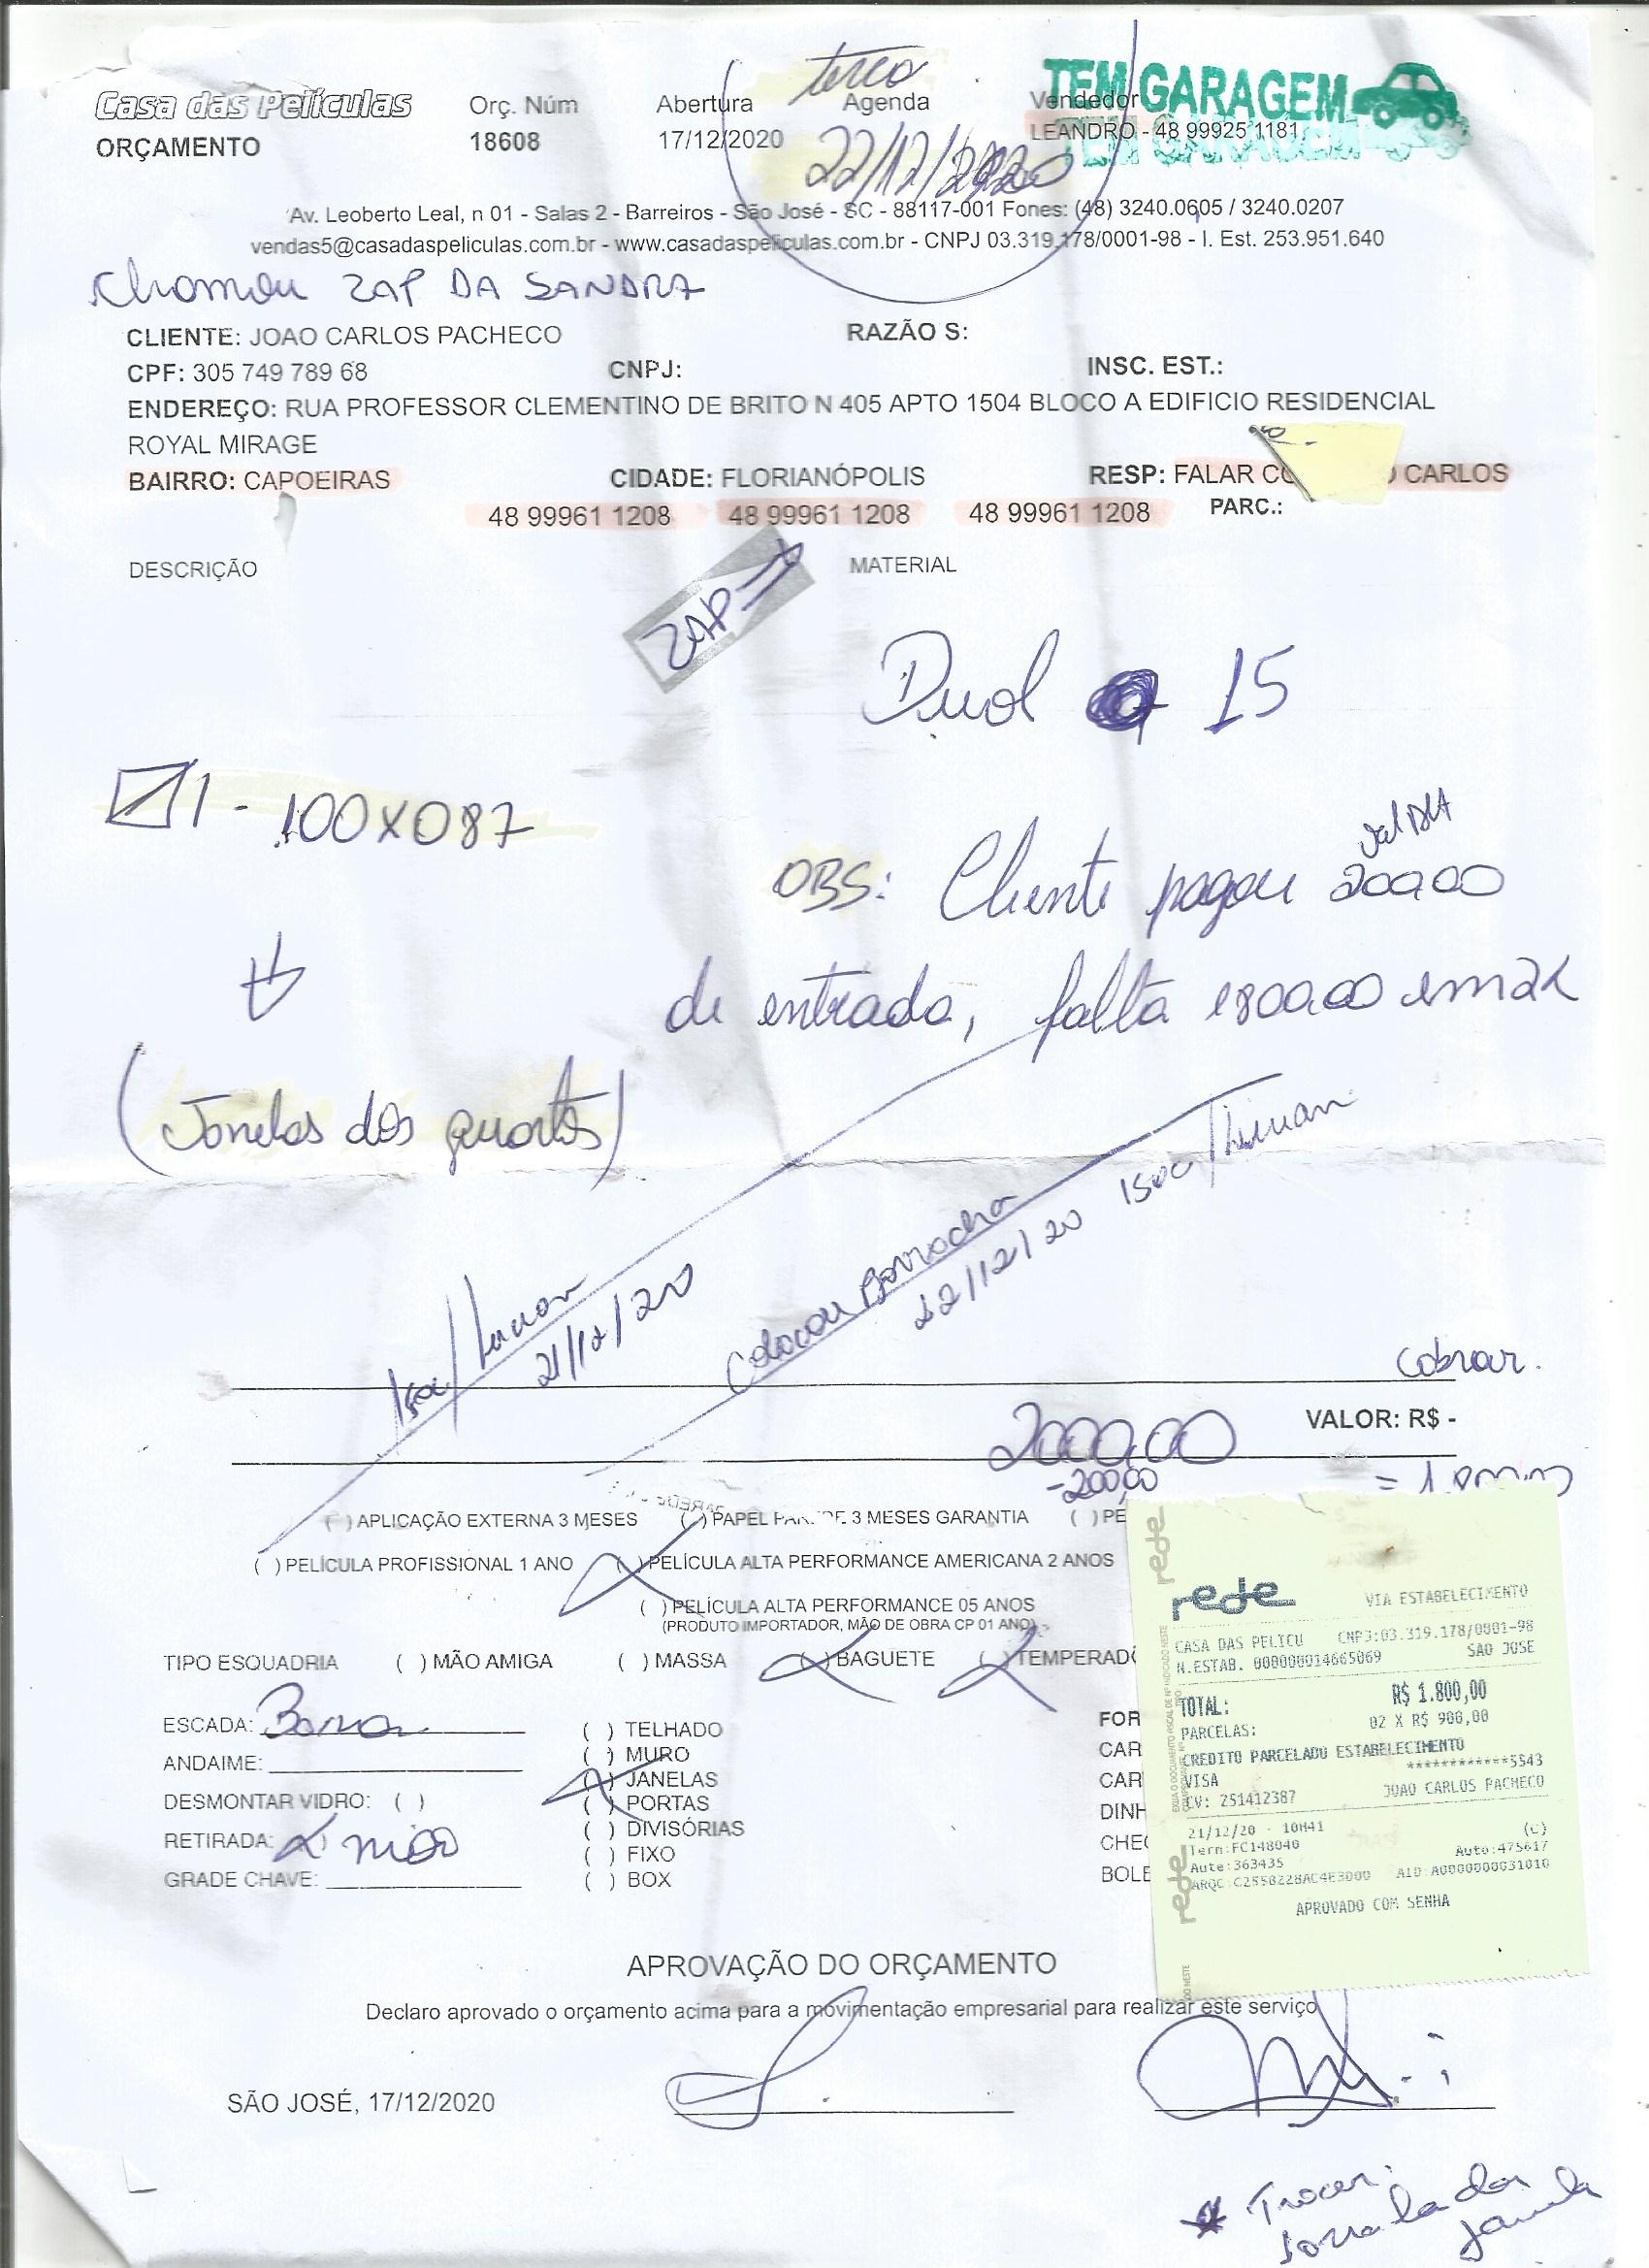 terça
TEM GARAGEM
TEM GARAGEM
Casa das Películas Orç. Núm Abertura Agenda Vendedor
ORÇAMENTO 18608 17/12/2020 22/12/2020 LEANDRO - 48 99925 1181
Av. Leoberto Leal, n 01 - Salas 2 - Barreiros - São José - SC - 88117-001 Fones: (48) 3240.0605 / 3240.0207
vendas5@casadaspeliculas.com.br - www.casadaspeliculas.com.br - CNPJ 03.319.178/0001-98 - I. Est. 253.951.640
Chamou ZAP DA SANDRA
CLIENTE: JOAO CARLOS PACHECO RAZÃO S:
CPF: 305 749 789 68 CNPJ: INSC. EST.:
ENDEREÇO: RUA PROFESSOR CLEMENTINO DE BRITO N 405 APTO 1504 BLOCO A EDIFICIO RESIDENCIAL
ROYAL MIRAGE
BAIRRO: CAPOEIRAS CIDADE: FLORIANÓPOLIS RESP: FALAR CO O CARLOS
48 99961 1208 48 99961 1208 48 99961 1208 PARC.:
DESCRIÇÃO MATERIAL
ZAP
Dual 15
1 - 100X087
OBS: Cliente pagou 200,00
de entrada, falta 1800,00 em 2x
(Janelas dos quartos)
Isac/Luan
21/12/20
Colocou Borracha
22/12/20 Isac/Luan
Cobrar.
2000,00 VALOR: R$ -
-200,00
( ) APLICAÇÃO EXTERNA 3 MESES ( ) PAPEL PAREDE 3 MESES GARANTIA ( ) PE
( ) PELÍCULA PROFISSIONAL 1 ANO ( ) PELÍCULA ALTA PERFORMANCE AMERICANA 2 ANOS
( ) PELÍCULA ALTA PERFORMANCE 05 ANOS
(PRODUTO IMPORTADOR, MÃO DE OBRA CP 01 ANO)
TIPO ESQUADRIA ( ) MÃO AMIGA ( ) MASSA ( ) BAGUETE ( ) TEMPERADO
ESCADA: ( ) TELHADO FOR
ANDAIME: ( ) MURO CAR
( ) JANELAS CAR
DESMONTAR VIDRO: ( ) ( ) PORTAS DINH
RETIRADA: não ( ) DIVISÓRIAS CHEC
( ) FIXO
GRADE CHAVE: ( ) BOX BOLE
rede
rede VIA ESTABELECIMENTO
CASA DAS PELICU CNPJ:03.319.178/0001-98
N.ESTAB. 000000014665069 SAO JOSE
TOTAL: R$ 1.800,00
PARCELAS: 02 X R$ 900,00
CREDITO PARCELADO ESTABELECIMENTO
************5543
VISA
CV: 251412387 JOAO CARLOS PACHECO
21/12/20 - 10H41 (C)
Term:FC148040 Auto:475617
Aute:363435
ARQC:C2558228AC4E3000 AID:A0000000031010
APROVADO COM SENHA
rede
APROVAÇÃO DO ORÇAMENTO
Declaro aprovado o orçamento acima para a movimentação empresarial para realizar este serviço
SÃO JOSÉ, 17/12/2020